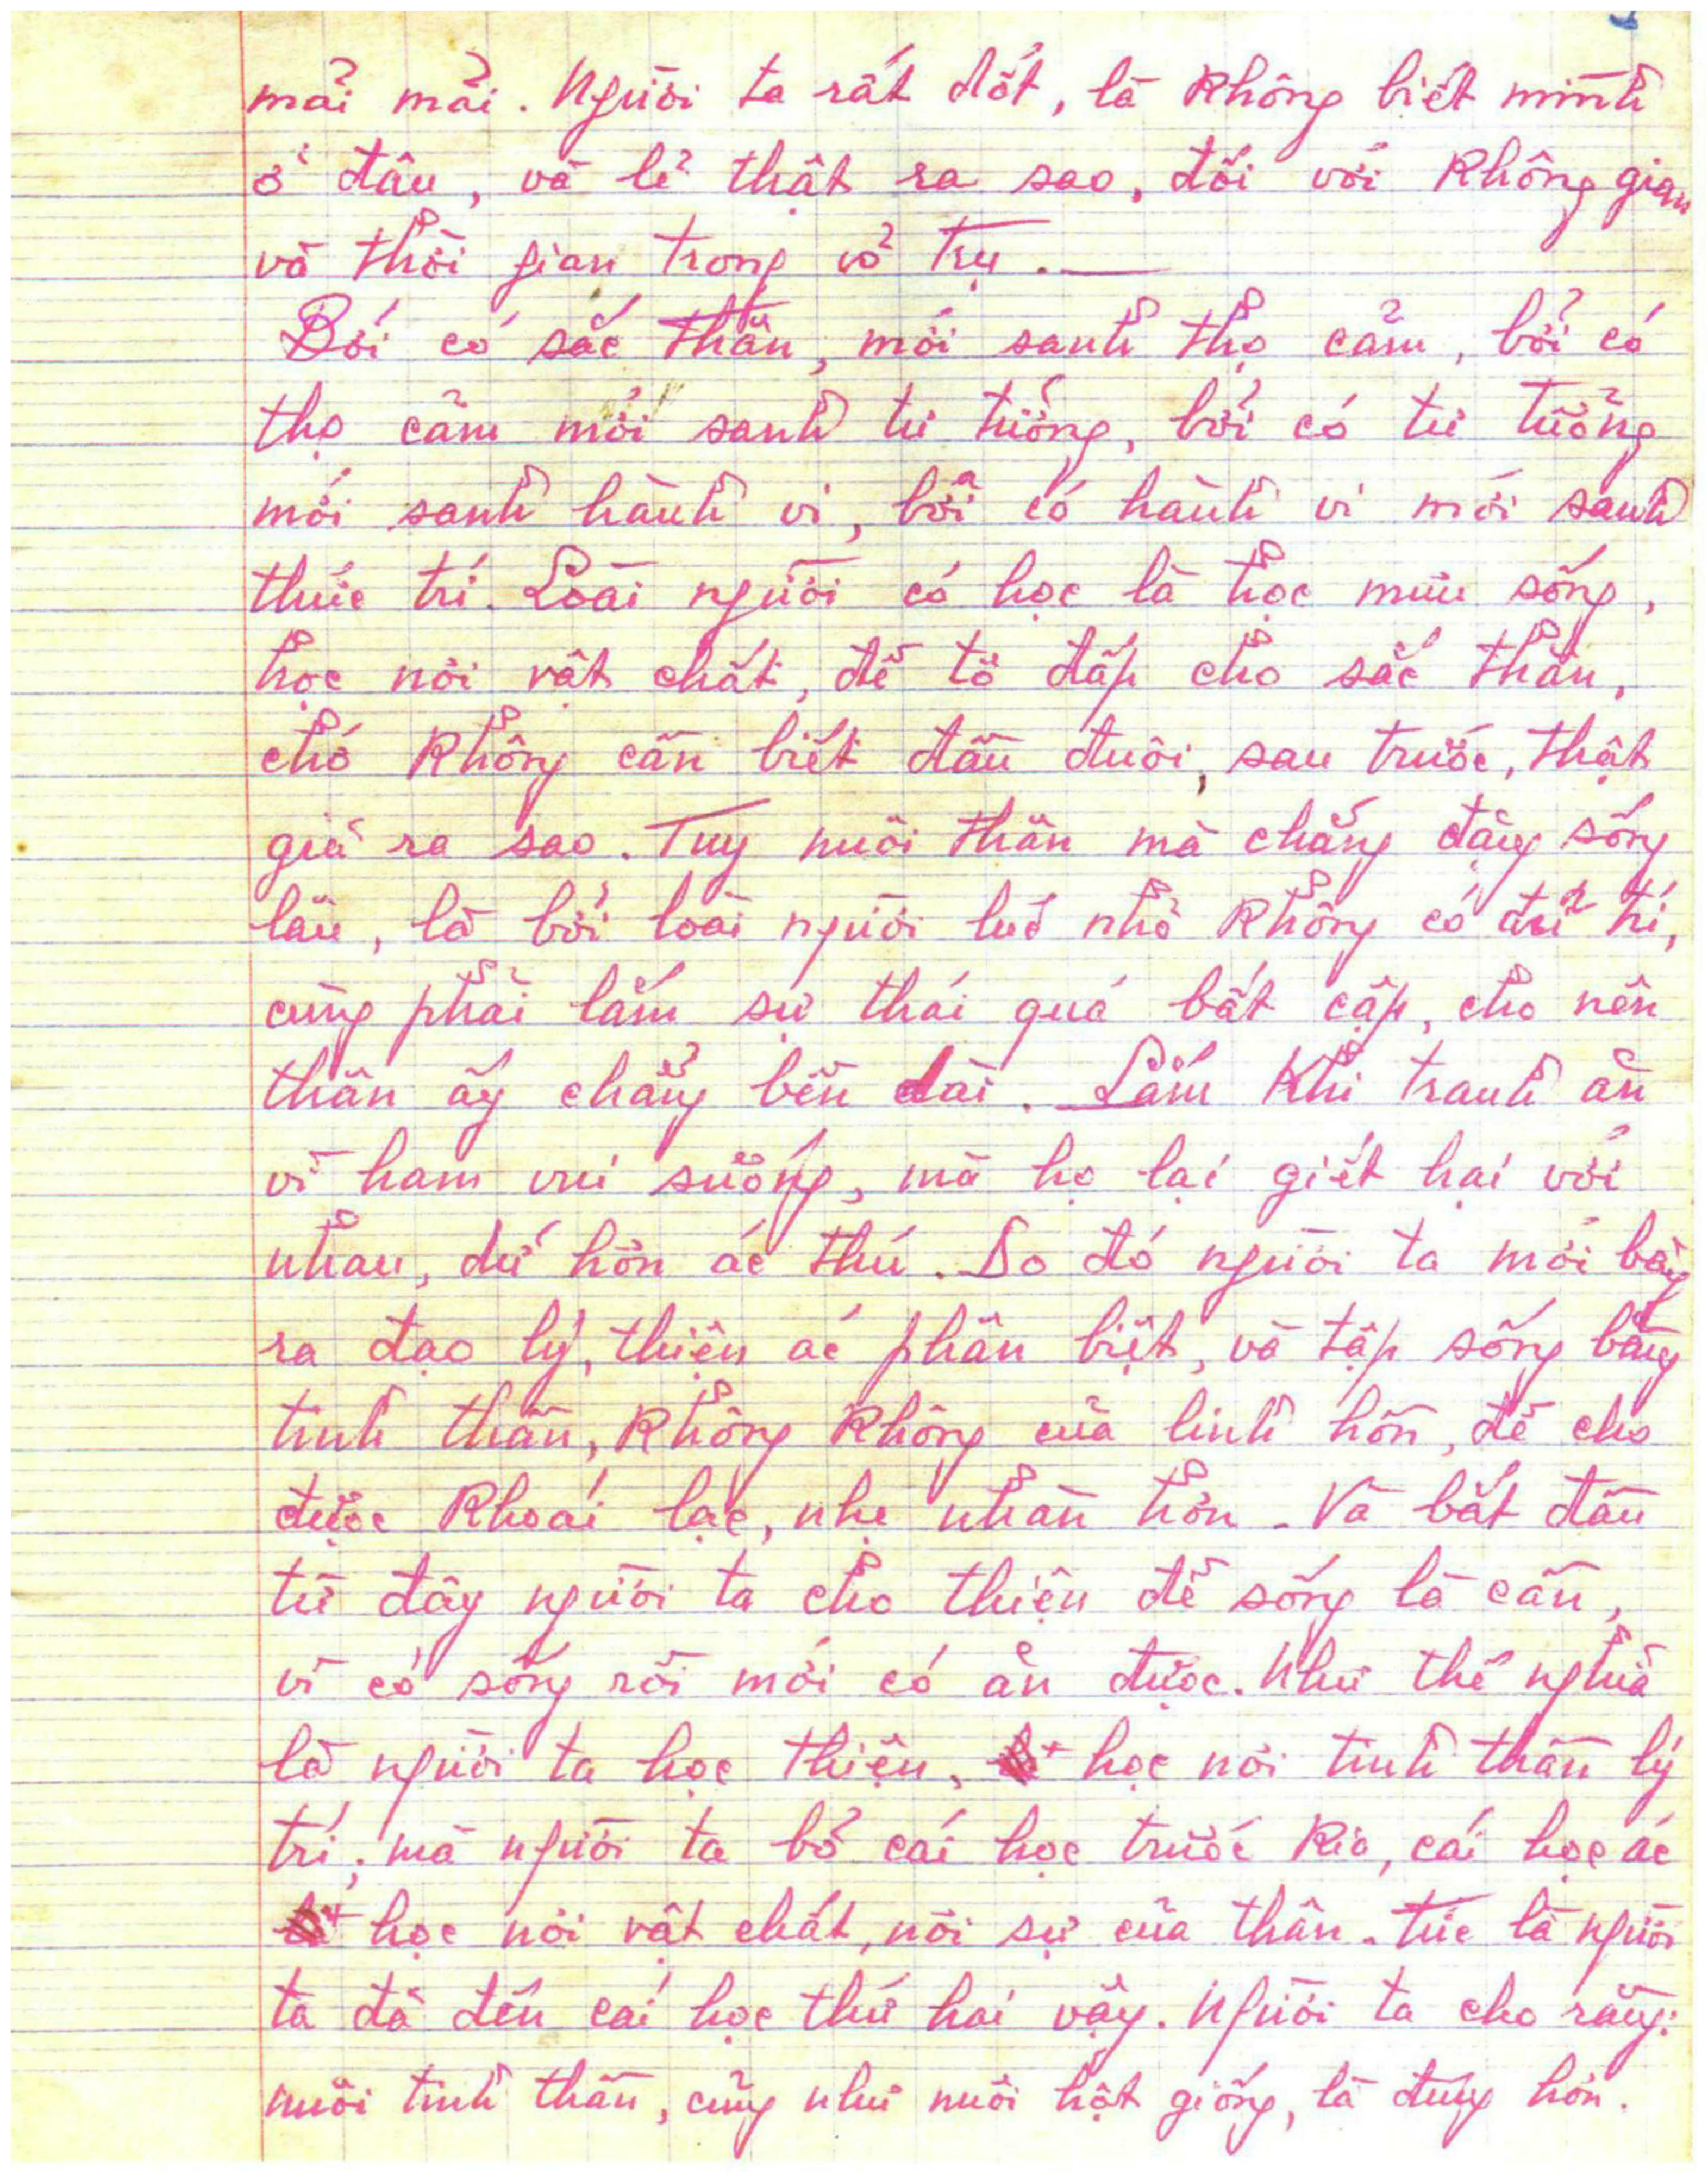 mải mải. Người ta rất dốt, là không biết mình
ở đâu, và lẻ thật ra sao, đối với không gian
và thời gian trong vỏ trụ.
Bởi có sắc thân, mới sanh thọ cảm, bởi có
thọ cảm mới sanh tư tưởng, bởi có tư tưởng
mới sanh hành vi, bởi có hành vi mới sanh
thức trí. Loài người có học là học mưu sống,
học nơi vật chất, để tô đấp cho sắc thân,
chớ không cần biết đầu đuôi, sau trước, thật
giả ra sao. Tuy nuôi thân mà chẳng đặng sống
lâu, là bởi loài người lúc nhỏ không có đủ trí,
cùng phải lắm sự thái quá bất cập, cho nên
thân ấy chẳng bền dài. Lắm khi tranh ăn
vì ham vui sướng, mà họ lại giết hại với
nhau, dử hơn ác thú. Do đó người ta mới bày
ra đạo lý, thiện ác phân biệt, và tập sống bằng
tinh thần, không không của linh hồn, để cho
được khoái lạc, nhẹ nhàn hơn. Và bắt đầu
từ đây người ta cho thiện để sống là cần,
vì có sống rồi mới có ăn được. Như thế nghĩa
là người ta học thiện, học nơi tinh thần lý
trí, mà người ta bỏ cái học trước kia, cái học ác
học nơi vật chất, nơi sự của thân. Tức là người
ta đả đến cái học thứ hai vậy. Người ta cho rằng:
nuôi tinh thần, cũng như nuôi hột giống, là đúng hơn.